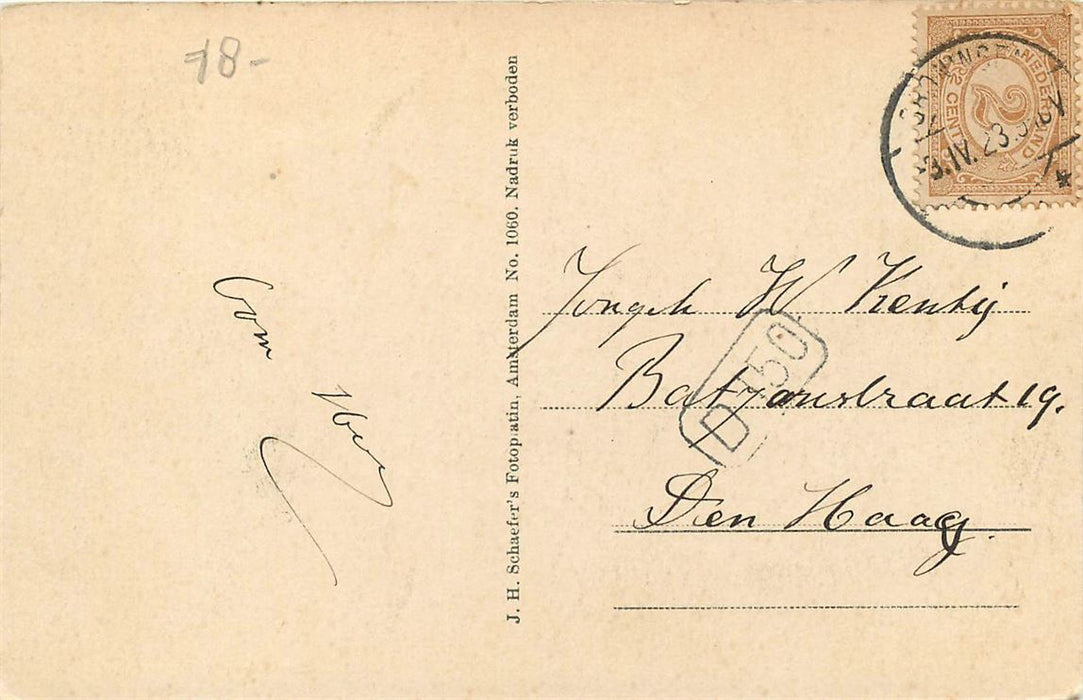 78-
J. H. Schaefer's Fotoplatin, Amsterdam No. 1060. Nadruk verboden
NEDERLAND
2
2 CENT
3.IV.23.
Jongeh W Kentij
straat 19.
Den Haag.
D 150
Oom